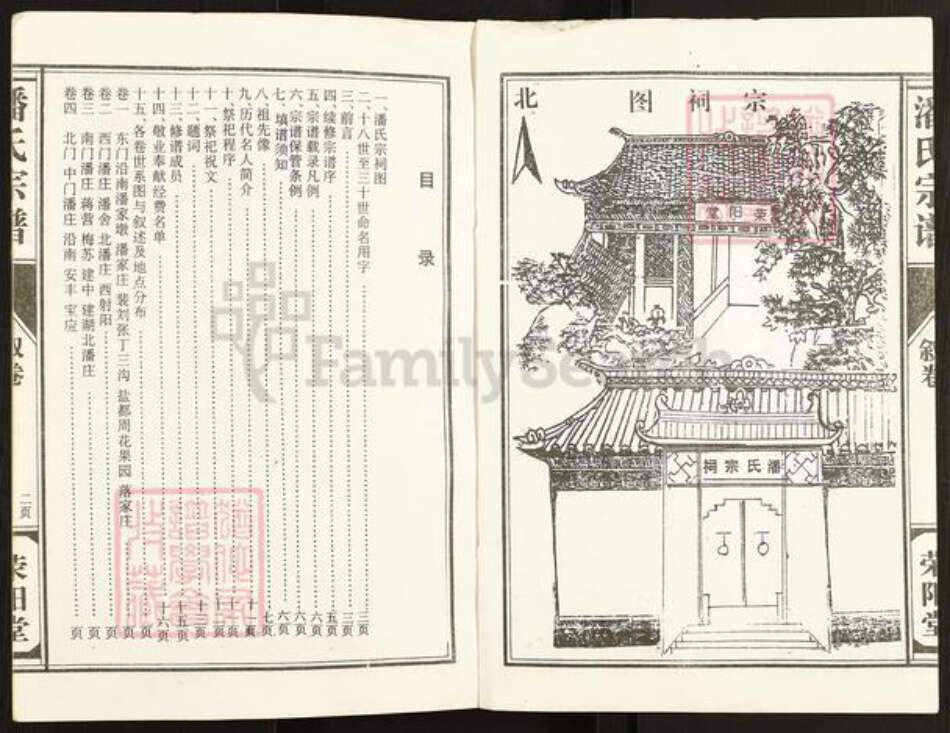 潘氏宗谱
荥阳堂
宗祠图
北
荥阳堂
潘氏宗祠
目录
一、潘氏宗祠图
二、十八世至三十世命名用字 三页
三、前言 三页
四、续修宗谱序 五页
五、宗谱载录凡例 六页
六、宗谱保管条例 六页
七、填谱须知 六页
八、祖先像 七页
九、历代名人简介
十、祭祀程序
十一、祭祀祝文
十二、题词 十三页
十三、修谱成员 十五页
十四、敬业奉献经费名单 十六页
十五、各卷世系图与叙述及地点分布 页
卷一 东门沿南潘家墩 潘家庄 裴刘张丁三沟 盐都周花果园 落家庄 页
卷二 西门潘庄 潘舍 北潘庄 西射阳 页
卷三 南门潘庄 蒋营 梅苏 建中 建湖北潘庄 页
卷四 北门 中门潘庄 沿南 安丰 宝应 页
潘氏宗谱
叙卷
二页
荥阳堂
FamilySearch